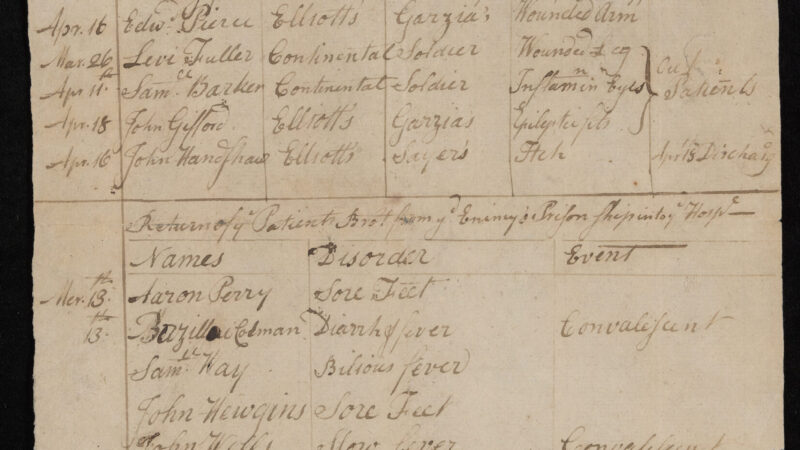 Apr. 16 Edwd. Pierce Elliott's Garzia's Wounded Arm
Mar. 26 Levi Fuller Continental Soldier Wounded Leg
Apr 11th Samll Barker Continental Soldier Inflamn in Eyes Out Patients
Apr. 18 John Gifford Elliott's Garzias Epilept fits
Apr. 16 John Handshaw Elliott's Sayer's Itch Apr 18 Discharg
Return of ye Patients Brot from ye Enemy's Prison Ship into ye Hospl
Names Disorder Event
Mar. 13th Aaron Perry Sore Feet
13th Colman Diarrh & fever Convalescent
Samll Way Bilious fever
John Hewgins Sore Feet
John Wells Slow fever Convalescent